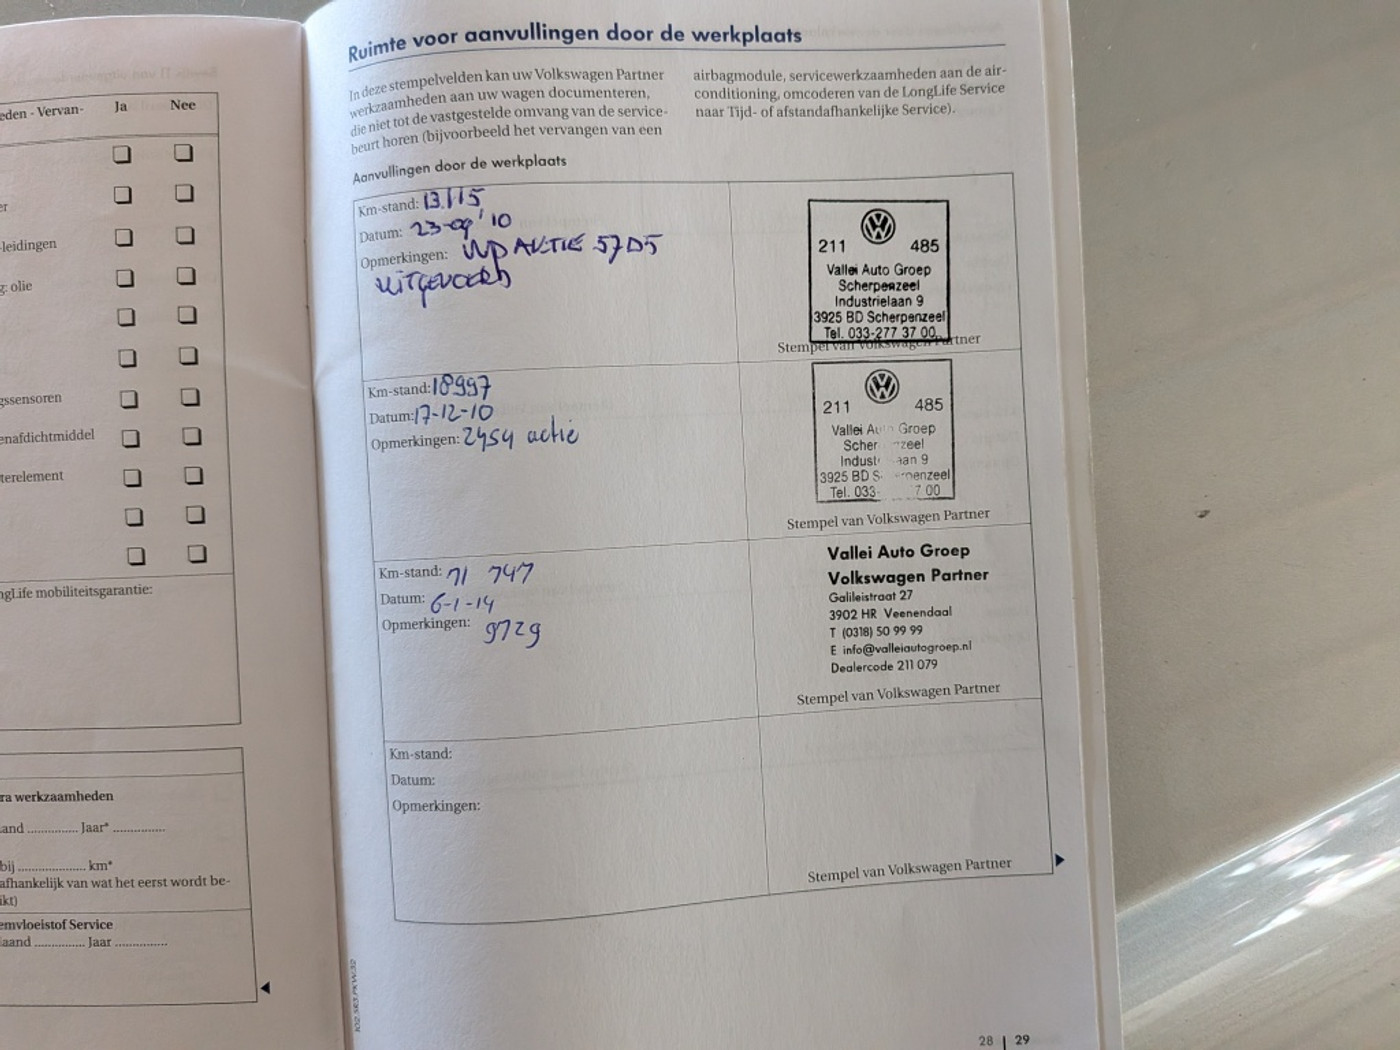 eden - Vervan-
Ja
Nee
er
-leidingen
g: olie
gssensoren
enafdichtmiddel
terelement
ngLife mobiliteitsgarantie:
ra werkzaamheden
and ............... Jaar* ...............
bij .................... km*
afhankelijk van wat het eerst wordt be-
ikt)
emvloeistof Service
aand ............... Jaar ...............
Ruimte voor aanvullingen door de werkplaats
In deze stempelvelden kan uw Volkswagen Partner
werkzaamheden aan uw wagen documenteren,
die niet tot de vastgestelde omvang van de service-
beurt horen (bijvoorbeeld het vervangen van een
airbagmodule, servicewerkzaamheden aan de air-
conditioning, omcoderen van de LongLife Service
naar Tijd- of afstandafhankelijke Service).
Aanvullingen door de werkplaats
Km-stand: 13.115
Datum: 23-09'10
Opmerkingen: AKTIE 57D5
UITGEVOERD
211 485
Vallei Auto Groep
Scherpenzeel
Industrielaan 9
3925 BD Scherpenzeel
Tel. 033-277 37 00
Stempel van Volkswagen Partner
Km-stand: 18997
Datum: 17-12-10
Opmerkingen: 24S4 actie
211 485
Vallei Au Groep
Scher zeel
Indust aan 9
3925 BD S penzeel
Tel. 033- 7 00
Stempel van Volkswagen Partner
Km-stand: 71 747
Datum: 6-1-14
Opmerkingen: 9729
Vallei Auto Groep
Volkswagen Partner
Galileistraat 27
3902 HR Veenendaal
T (0318) 50 99 99
E info@valleiautogroep.nl
Dealercode 211 079
Stempel van Volkswagen Partner
Km-stand:
Datum:
Opmerkingen:
Stempel van Volkswagen Partner
28 | 29